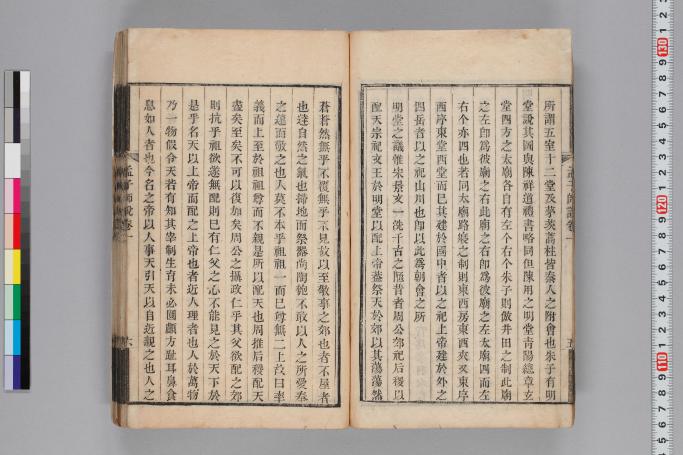 所謂五室十二堂及茅茨蒿柱皆秦人之附會也朱子有明
堂說其圖與陳祥道禮書略同但陳用之明堂青陽總章玄
堂四方之太廟各自有左个右个朱子則倣井田之制此廟
之左卽爲彼廟之右此廟之右卽爲彼廟之左太廟四而左
右个亦四也若同太廟路寢之制則東西房東西夾又東序
西序東堂西堂而已其建於國中者以之祀上帝建於外之
四岳者以之祀山川也卽以此爲朝會之所
明堂之議惟宋景文一洗千古之陋昔者周公郊祀后稷以
配天宗祀文王於明堂以配上帝蓋祭天於郊以其蕩蕩然
蒼蒼然無乎不覆無乎不見故以至敬事之郊也者不屋者
也達自然之氣也掃地而祭器尚陶匏不敢以人之所愛奉
之遠而敬之也人莫不本乎祖祖一而已尊無二上故曰率
義而上至於祖祖尊而不親是所以配天也周推后稷配天
盡矣至矣不可以復加矣周公之攝政仁乎其父欲配之郊
則抗乎祖欲遂無配則已有仁父之心不能見之於天下於
是乎名天以上帝而配之上帝也者近人理者也人於萬物
乃一物假令天若有知其宰制生育未必圓顱方趾耳鼻食
息如人者也今名之帝以人事天引天以自近親之也人之
孟子師說卷一
六
孟子師說卷一
五